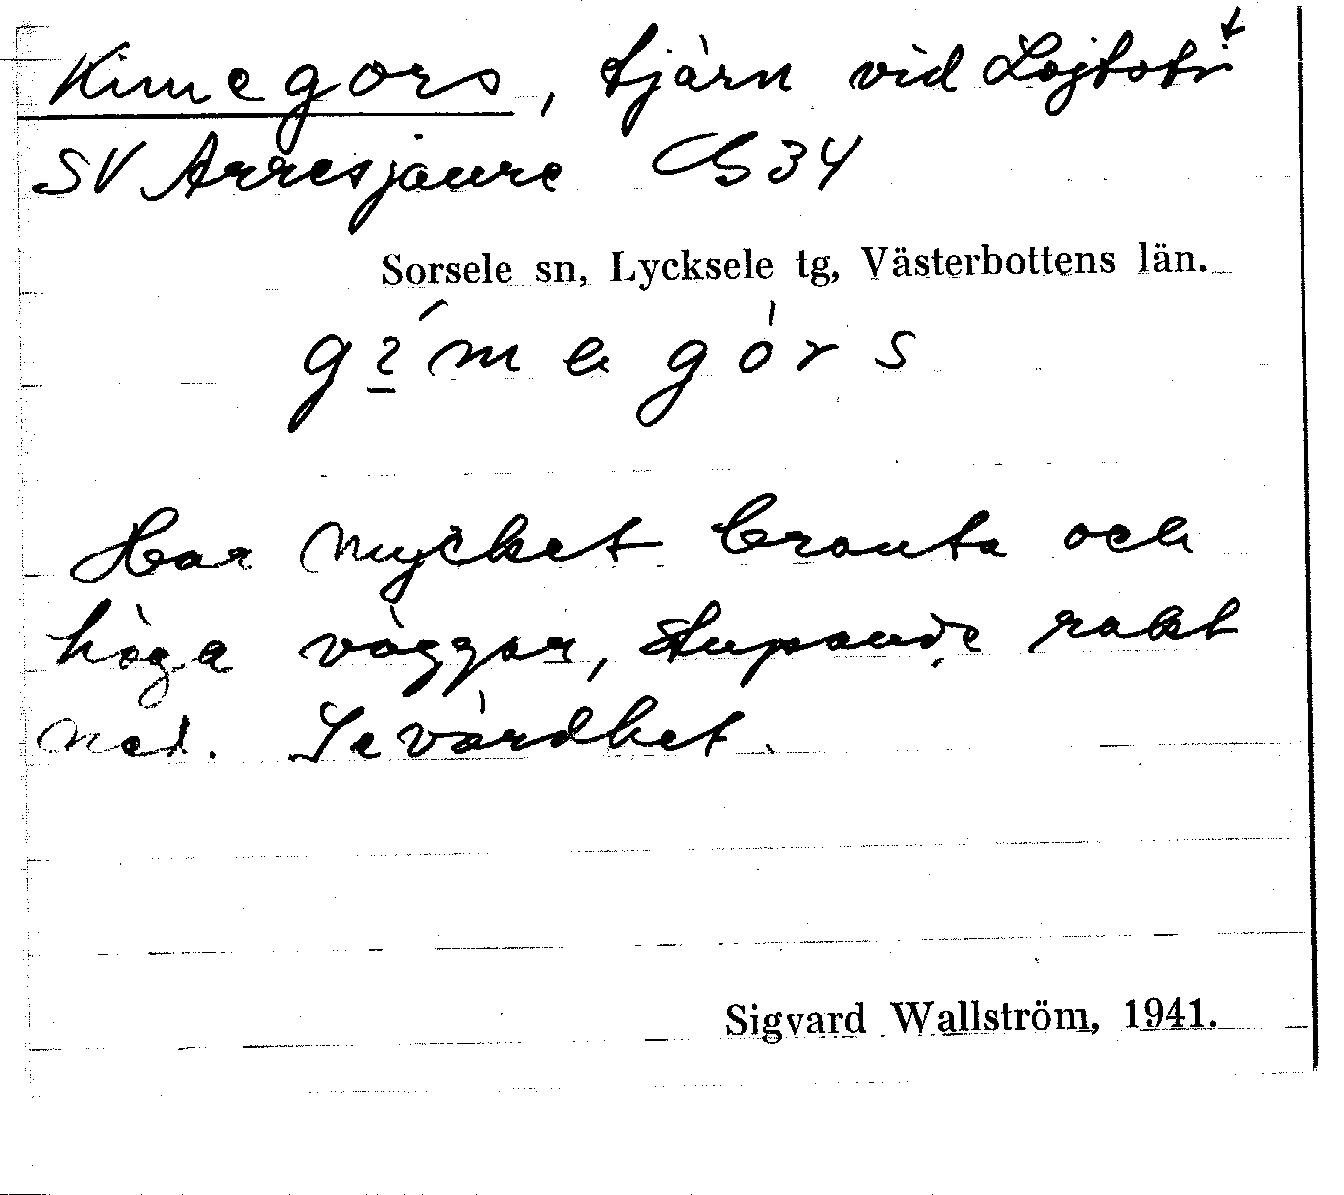 Kimegors, tjärn vid Lojtstr
SV Arresjaure G34
Sorsele sn, Lycksele tg, Västerbottens län.
gimegórs
Har mycket branta och
höga väggar, stupande rakt
ned. Sevärdhet.
Sigvard Wallström, 1941.